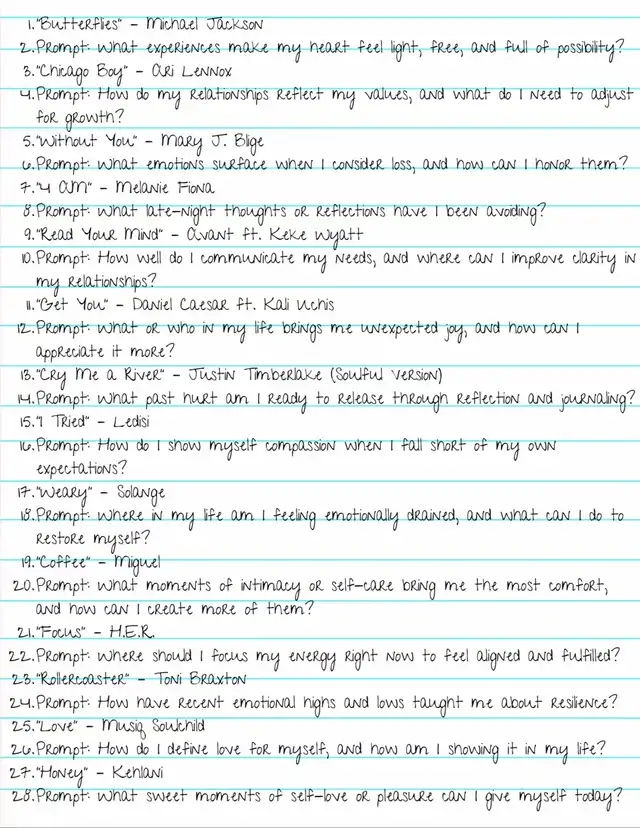 1. "Butterflies" - Michael Jackson
2. Prompt: What experiences make my heart feel light, free, and full of possibility?
3. "Chicago Boy" - Ari Lennox
4. Prompt: How do my relationships reflect my values, and what do I need to adjust
for growth?
5. "Without You" - Mary J. Blige
6. Prompt: What emotions surface when I consider loss, and how can I honor them?
7. "4 AM" - Melanie Fiona
8. Prompt: What late-night thoughts or reflections have I been avoiding?
9. "Read Your Mind" - Avant ft. Keke Wyatt
10. Prompt: How well do I communicate my needs, and where can I improve clarity in
my relationships?
11. "Get You" - Daniel Caesar ft. Kali Uchis
12. Prompt: What or who in my life brings me unexpected joy, and how can I
appreciate it more?
13. "Cry Me a River" - Justin Timberlake (Soulful Version)
14. Prompt: What past hurt am I ready to release through reflection and journaling?
15. "I Tried" - Ledisi
16. Prompt: How do I show myself compassion when I fall short of my own
expectations?
17. "Weary" - Solange
18. Prompt: Where in my life am I feeling emotionally drained, and what can I do to
restore myself?
19. "Coffee" - Miguel
20. Prompt: What moments of intimacy or self-care bring me the most comfort,
and how can I create more of them?
21. "Focus" - H.E.R.
22. Prompt: Where should I focus my energy right now to feel aligned and fulfilled?
23. "Rollercoaster" - Toni Braxton
24. Prompt: How have recent emotional highs and lows taught me about resilience?
25. "Love" - Musiq Soulchild
26. Prompt: How do I define love for myself, and how am I showing it in my life?
27. "Honey" - Kehlani
28. Prompt: What sweet moments of self-love or pleasure can I give myself today?